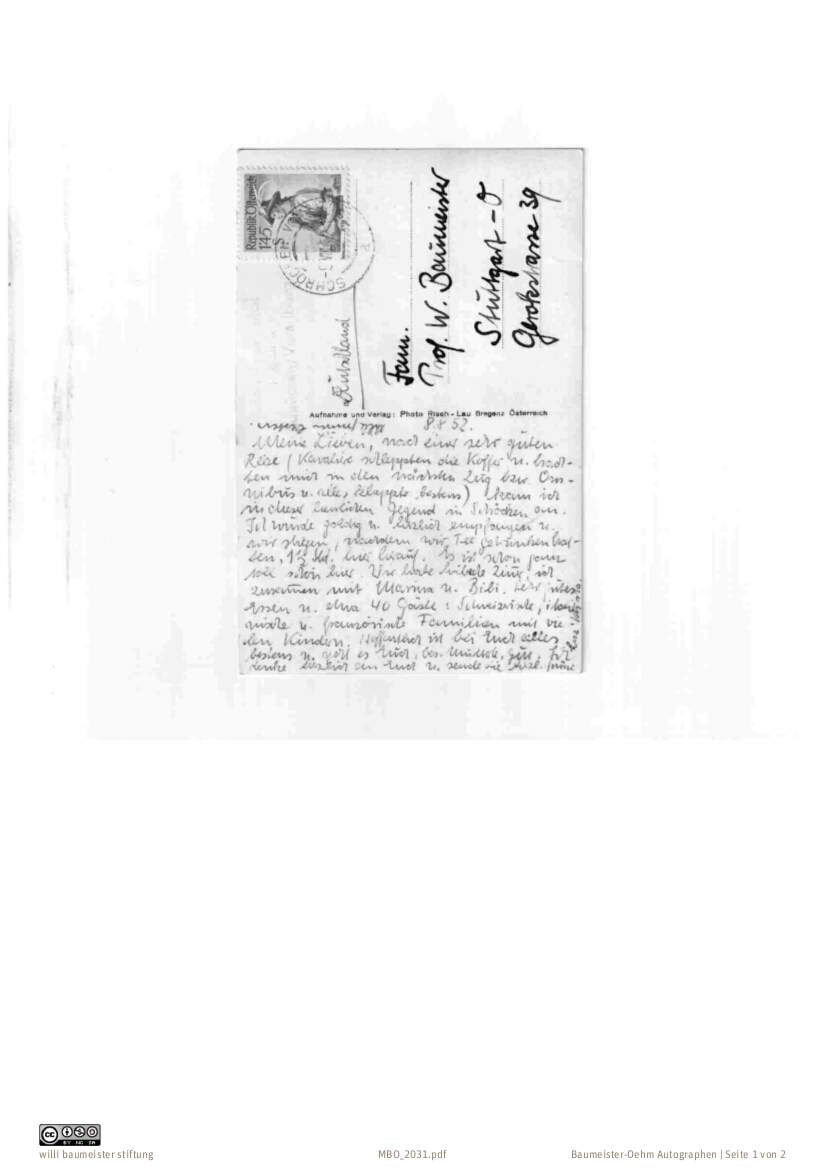 Republik Österreich
1.45
SCHRÖCKEN
Deutschland
Fam.
Prof. W. Baumeister
Stuttgart-O
Gerokstrasse 39
Aufnahme und Verlag: Photo Risch-Lau Bregenz Österreich
8.8.52.
Meine Lieben, nach einer sehr guten
Reise (Kavaliere schleppten die Koffer u. brach-
ten mich in den nächsten Zug bzw. Om-
nibus u. alles klappte bestens) kam ich
in dieser herrlichen Gegend in Schröcken an.
Ich wurde goldig u. herzlich empfangen u.
wir stiegen, nachdem wir Tee getrunken hat-
ten, 1½ Std. hier herauf. Es ist schon ganz
toll schön hier. Wir
zusammen mit Marina u. Bibi. Sehr gutes
Essen u. etwa 40 Gäste: Schweizerische,
u. französische Familien mit vie-
len Kindern. Hoffentlich ist bei Euch alles
bestens u. geht es Euch, bes. gut. Ich
denke herzlich an Euch u. sende
willi baumeister stiftung
MBO_2031.pdf
Baumeister-Oehm Autographen | Seite 1 von 2
CC BY NC SA